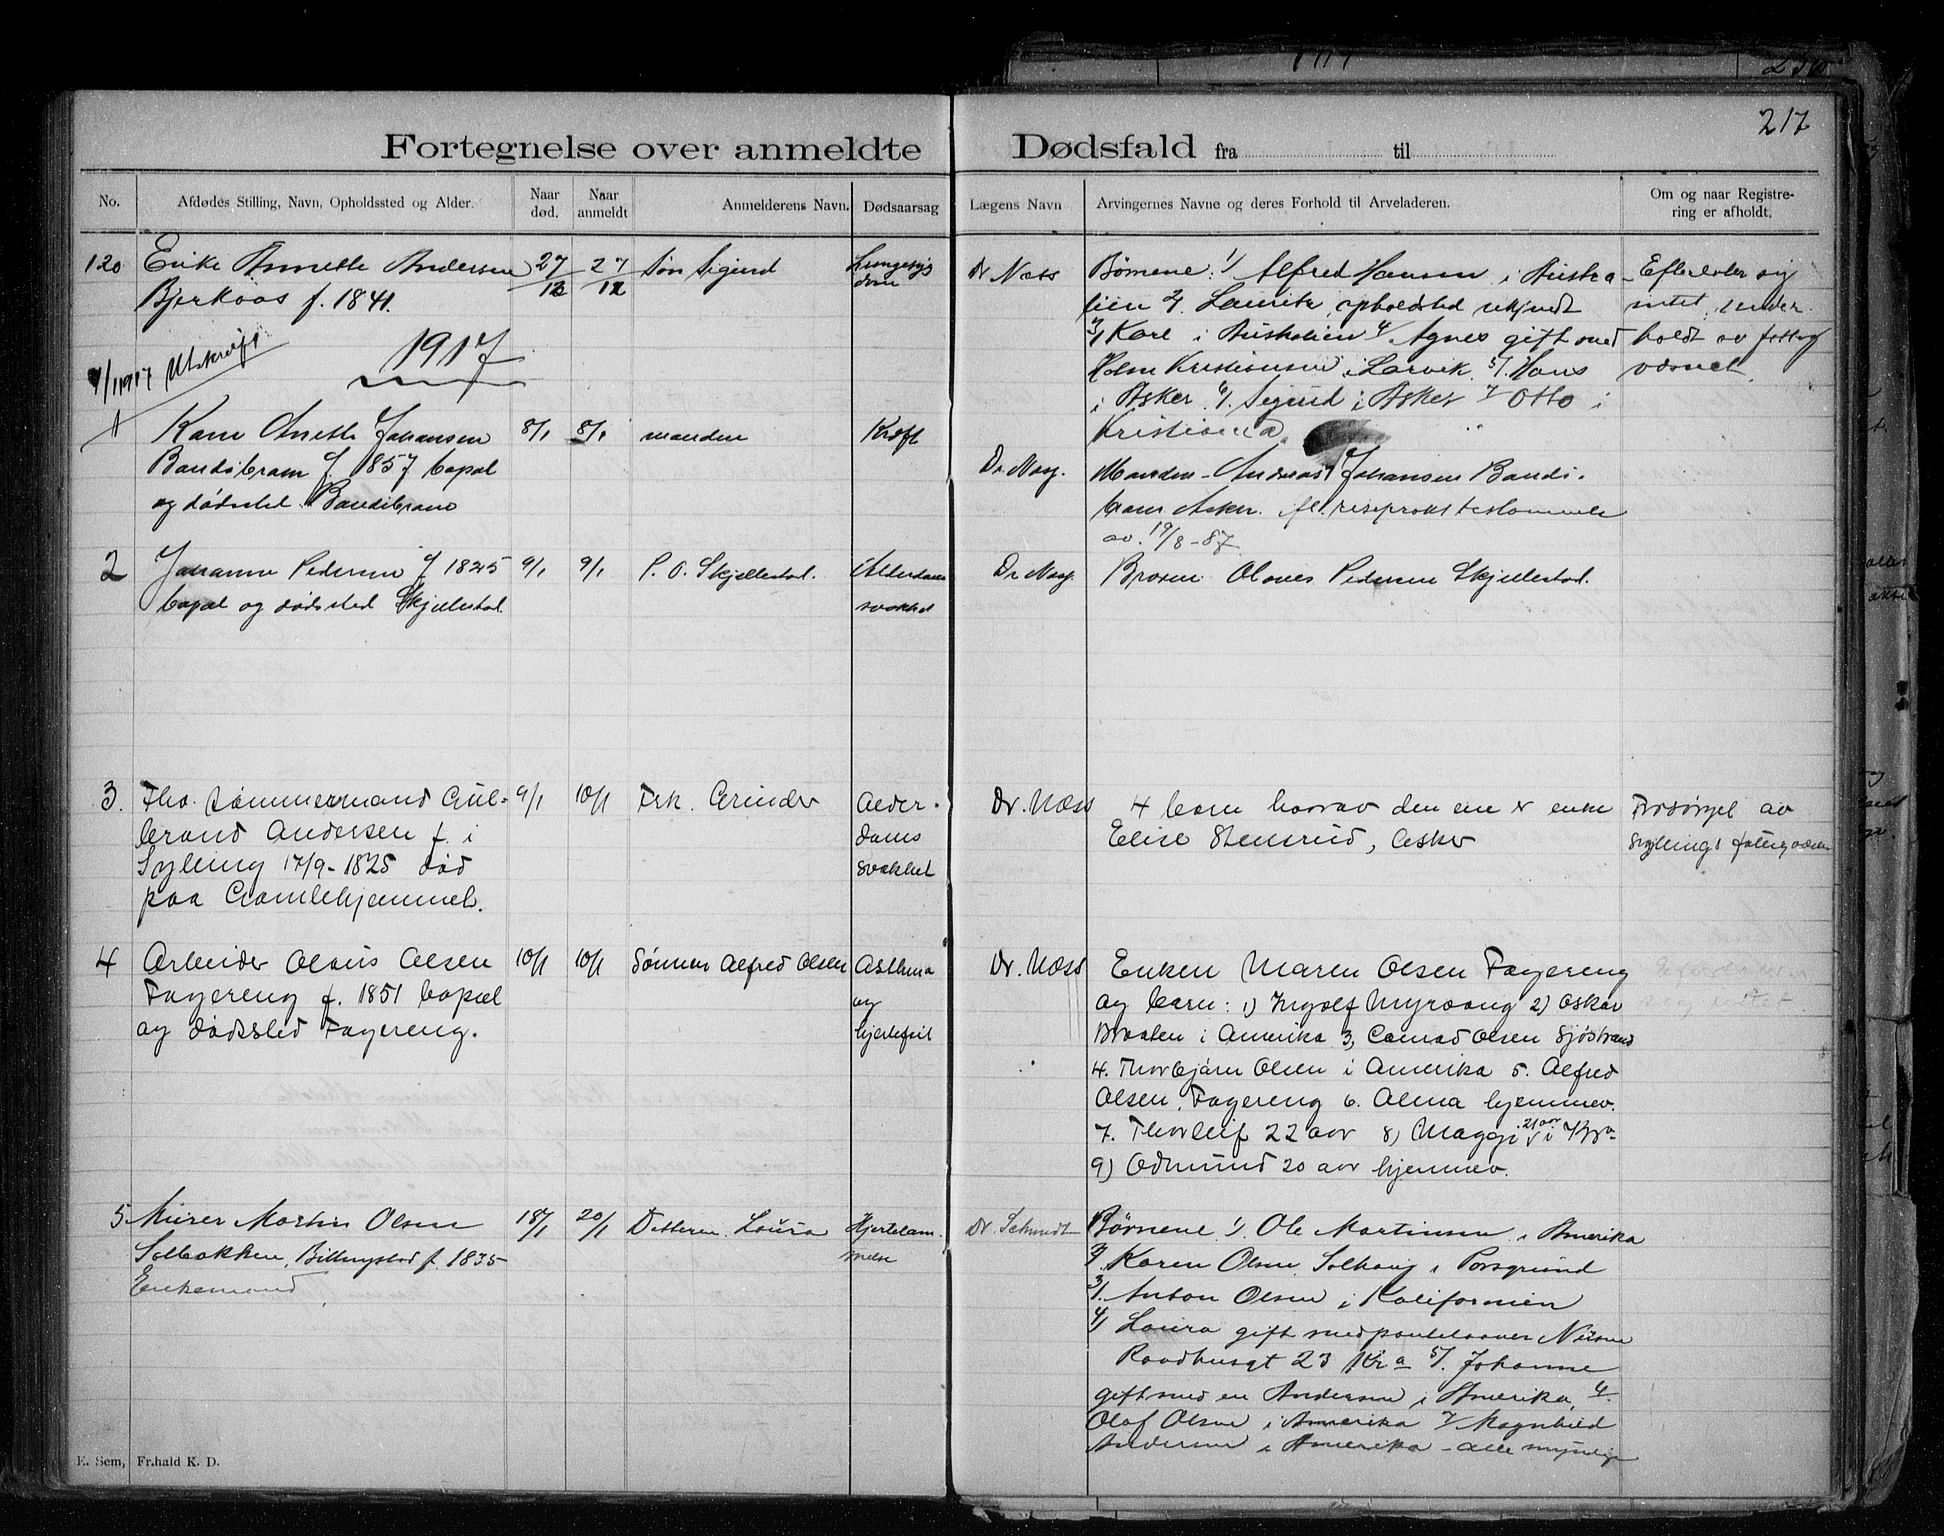 217
Fortegnelse over anmeldte Dødsfald fra til
No.
Afdødes Stilling, Navn, Opholdssted og Alder.
Naar død.
Naar anmeldt
Anmelderens Navn.
Dødsaarsag
Lægens Navn
Arvingernes Navne og deres Forhold til Arveladeren.
Om og naar Registrering er afholdt.
120
Enke Annette Andersen
Bjerkaas f. 1841.
27/12
27/12
Søn Sigurd
Lungesyg
dom
Dr Næss
Børnene: 1/ Alfred Hansen i Austra
lien 2/. Lauritz, opholdsted ukjendt
3/ Karl i Australien 4/ Agnes gift med
Holm Kristiansen i Larvik. 5/. Hans
i Asker. 6/. Sigurd i Asker 7/ Otto i
Kristiania
Efterlater sig
intet, under
holdt av fattig
væsnet.
9/1 1917 Utskrift
1917
1
Kone Anette Johansen
f. 1857 bopæl
og dødsted
8/1
8/1
manden
Kræft
Dr Næss.
Manden - Andreas Johansen
Asker. testamente
av. 19/8-87
2
Johanne Pedersen f 1825
bopæl og dødsted Skjellestad
9/1
9/1
P. O. Skjellestad.
Alderdoms
svakhed
Dr Næss.
Broren: Olaves Pedersen Skjellestad.
3.
Fhv. Tømmermand Gul-
brand Andersen f. i
Sylling 17/9-1825 død
paa Gamlehjemmet.
9/1
10/1
Frk. Grinder
Alder-
doms
svakhet
Dr. Næss
4 barn hvorav den ene er enke
Elise Stensrud, Asker
Forsørget av
Syllings fattigvæsen
4
Arbeider Olaus Olsen
Fagereng f. 1851 bopæl
og dødssted Fagereng.
10/1
10/1
Sønnen Alfred Olsen
Asthma
og
hjertefeil
Dr. Næss
Enken Maren Olsen Fagereng
og barn: 1) Ingolf Myrvang 2) Oskar
Braaten i Amerika 3, Conrad Olsen Sjøstrand
4. Thorbjørn Olsen i Amerika 5. Alfred
Olsen, Fagereng 6. Alma hjemmev.
7. Thorleif 22 aar 8) Maggi 21 aar i Kra
9) Odmund 20 aar hjemmev.
5.
Murer Martin Olsen
Solbakken, Billingstad f. 1835
Enkemand
18/1
20/1
Datteren Laura
Hjertelam-
melse
Dr. Schmidt
Børnene: 1/. Ole Martinsen i Amerika
2/. Karen Olsen Solhaug i Porsgrund
3/. Anton Olsen i Kalifornien
4/ Laura gift med pantelaaner Nilsen
Raadhusgt 23 Kra 5/. Johanne
gift med en Andersen i Amerika, 6/.
Olaf Olsen i Amerika 7/ Magnhild
Andersen i Amerika - alle myndige
E. Sem, Fr.hald K. D.